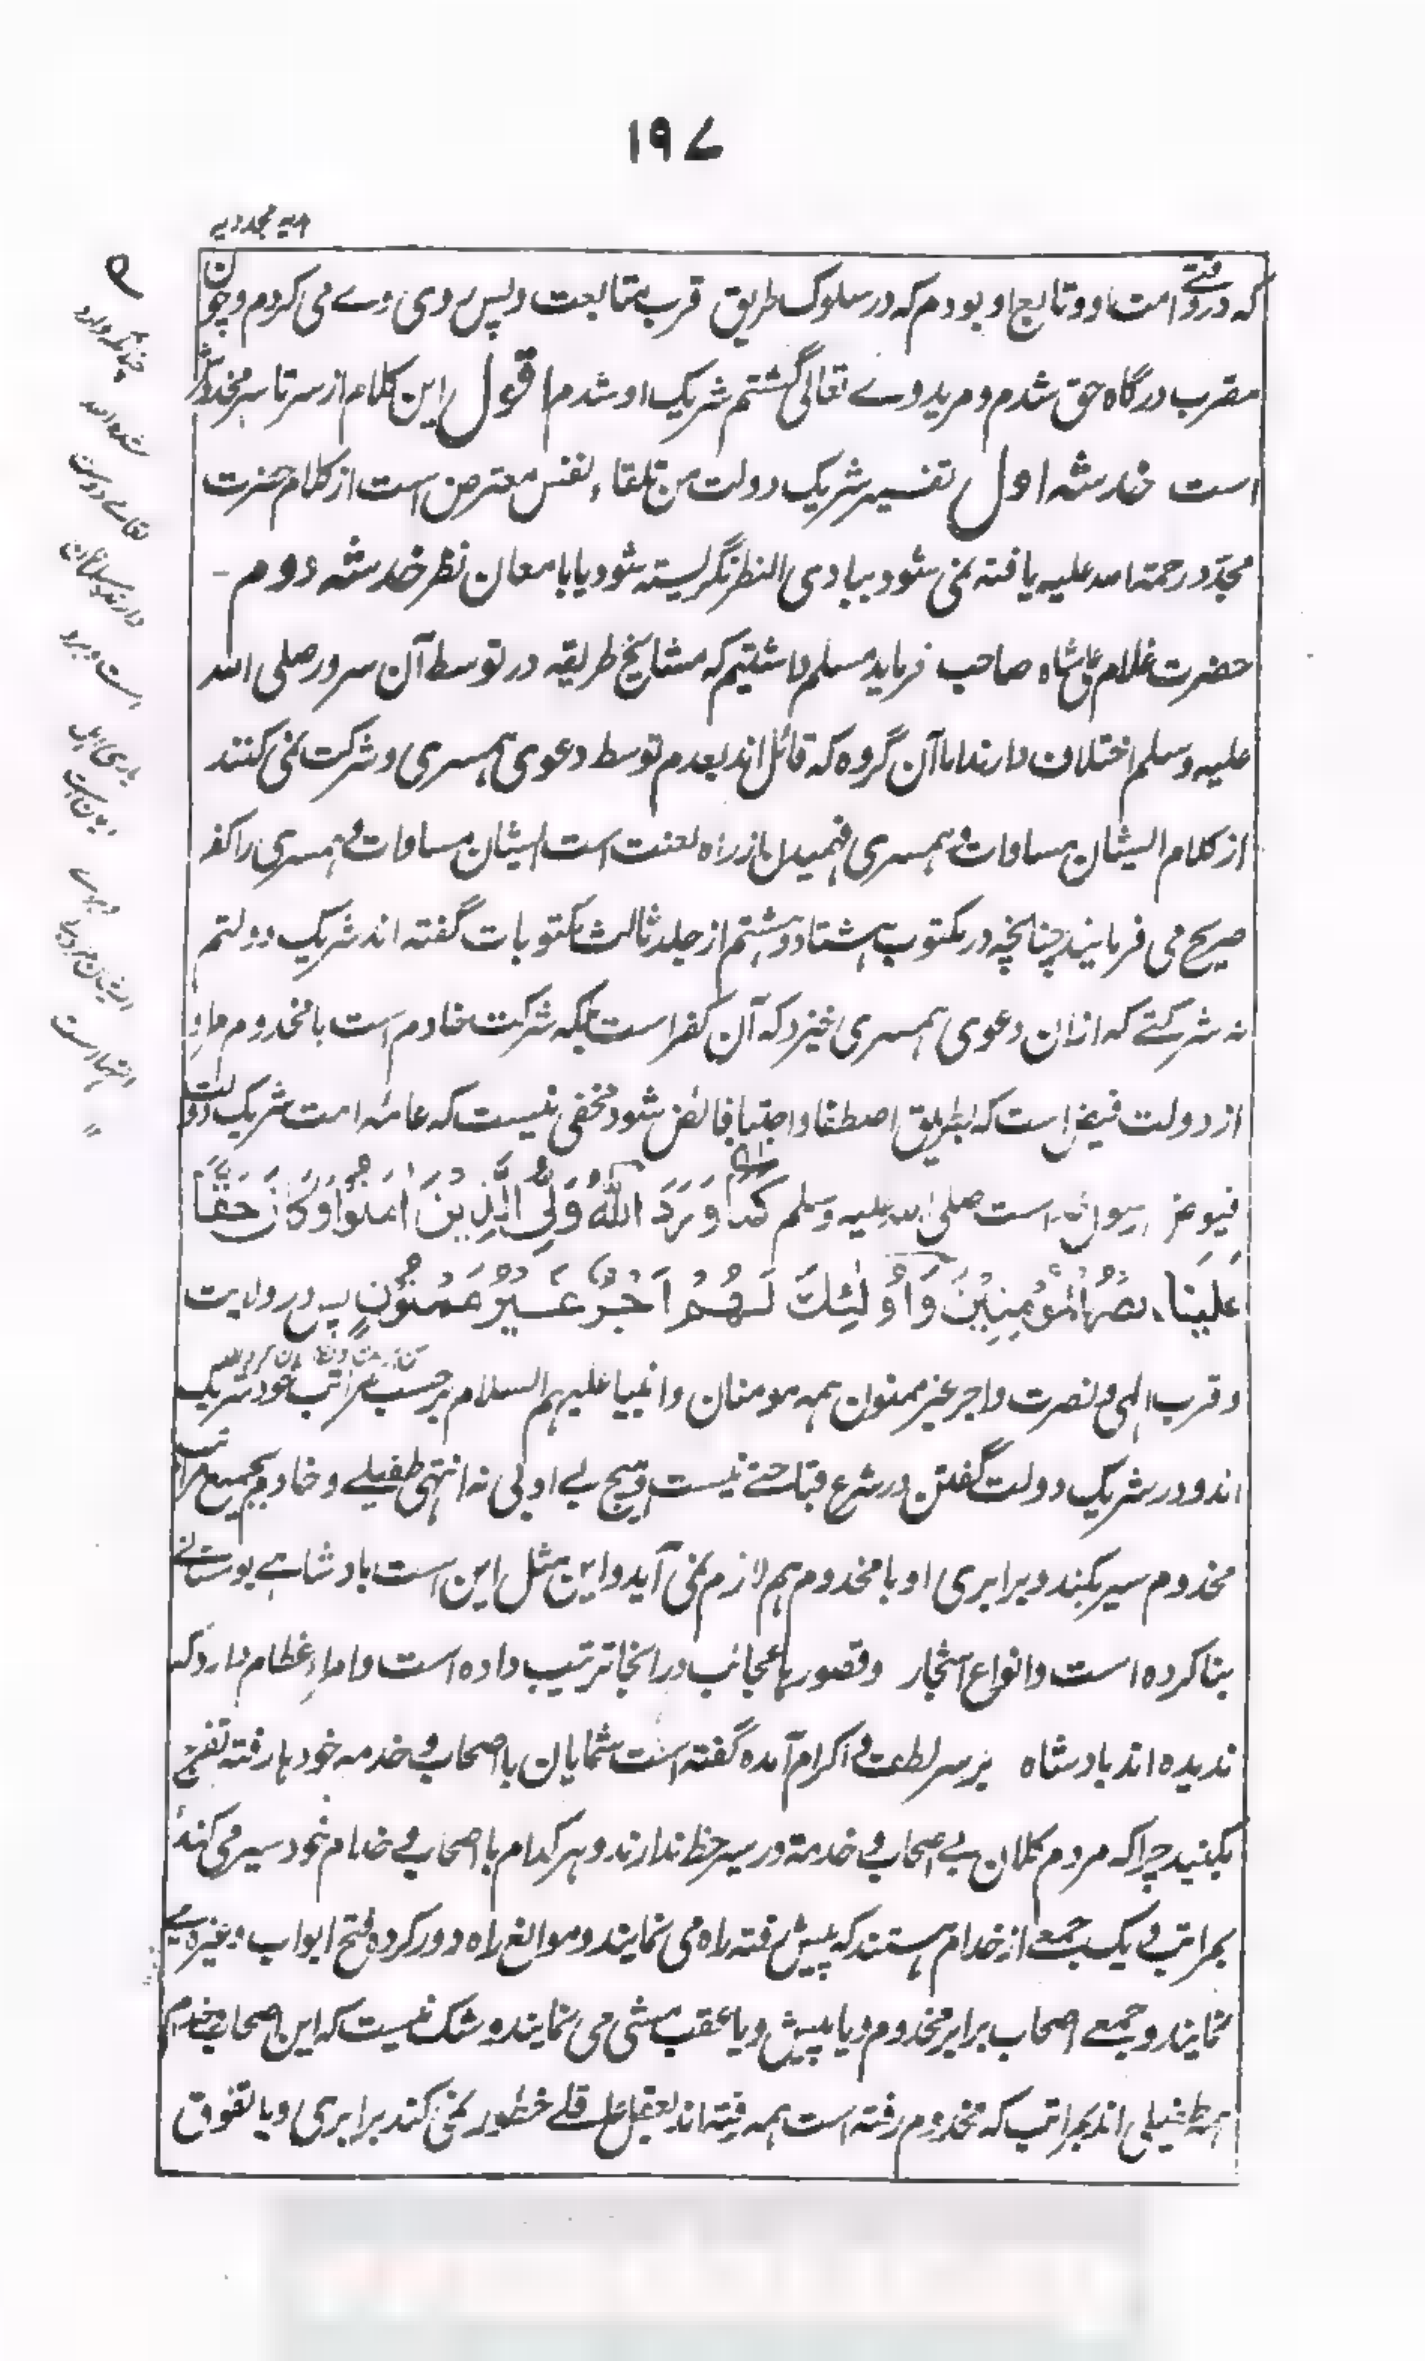 ۱۹۷
ہدیہ مجددیہ
کہ در وقتے امت او و تابع او بودم کہ در سلوک طریق قرب متابعت و پس روی وے می کردم و چون
مقرب درگاہ حق شدم و مرید وے تعالی گشتم شریک او شدم اقول این کلام از سرتا سر مخدوش
است خدشہ اول تفسیر شریک دولت من تلقاء نفس معترض است از کلام حضرت
مجدّد رحمۃ اللہ علیہ یافتہ نمی شود ببادی النظر نگریستہ شود یا بامعان نظر خدشہ دوم -
حضرت غلام علی شاہ صاحب فرماید مسلم داشتیم کہ مشایخ طریقہ در توسط آن سرور صلی اللہ
علیہ وسلم اختلاف دارند اما آن گروہ کہ قائل اند بعدم توسط دعوی ہمسری و شرکت نمی کنند
از کلام ایشان مساوات و ہمسری فہمیدن از راہ لعنت است ایشان مساوات و ہمسری را کفر
صریح می فرمایند چنانچہ در مکتوب ہشتاد و ہشتم از جلد ثالث مکتوبات گفتہ اند شریک دولتم
نہ شرکتے کہ ازان دعوی ہمسری خیزد کہ آن کفر است بلکہ شرکت خادم است با مخدوم مراد
از دولت فیض است کہ بطریق اصطفا و اجتبا فائض شود مخفی نیست کہ عامۂ امت شریک دولت
فیوض رسول است صلی اللہ علیہ وسلم كَمَا وَرَدَ اللّٰهُ وَلِيُّ الَّذِينَ اٰمَنُوا وَكَانَ حَقًّا
عَلَيْنَا نَصْرُ الْمُؤْمِنِينَ وَاُولٰئِكَ لَهُمْ اَجْرٌ غَيْرُ مَمْنُونٍ پس در ولایت
و قرب الہی و نصرت و اجر غیر ممنون ہمہ مومنان و انبیا علیہم السلام بر حسب مراتب خود شریک
اند و در شریک دولت گفتن در شرع قباحتے نیست و ہیچ بے ادبی نہ انتہی طفیلے و خادم بجمیع مراتب
مخدوم سیر بکند و برابری او با مخدوم ہم لازم نمی آید و این مثل این است بادشاہے بوستانے
بنا کردہ است و انواع اشجار و قصور با عجائب در انجا ترتیب دادہ است و امراءِ عظام دارد کہ
ندیدہ اند بادشاہ بر سر لطف و اکرام آمدہ گفتہ است شمایان با اصحاب و خدمہ خود ہا رفتہ تفرج
بکنید چراکہ مردم کلان بے اصحاب و خدمۃ در سیر حظ ندارند و ہر کدام با اصحاب و خدام خود سیر می کند
بمراتب و یک جمعے از خدام ہستند کہ پیش رفتہ راہ می نمایند و موانع راہ دور کردہ فتح ابواب وغیرہ می
نمایند و جمعے اصحاب برابر مخدوم و یا پیش و یا عقب مشی می نمایند و شک نیست کہ این اصحاب خدام
ہمہ طفیلی اند بمراتب کہ مخدوم رفتہ است ہمہ رفتہ اند بعقل عاقلے خطور نمی کند برابری و یا تفوق